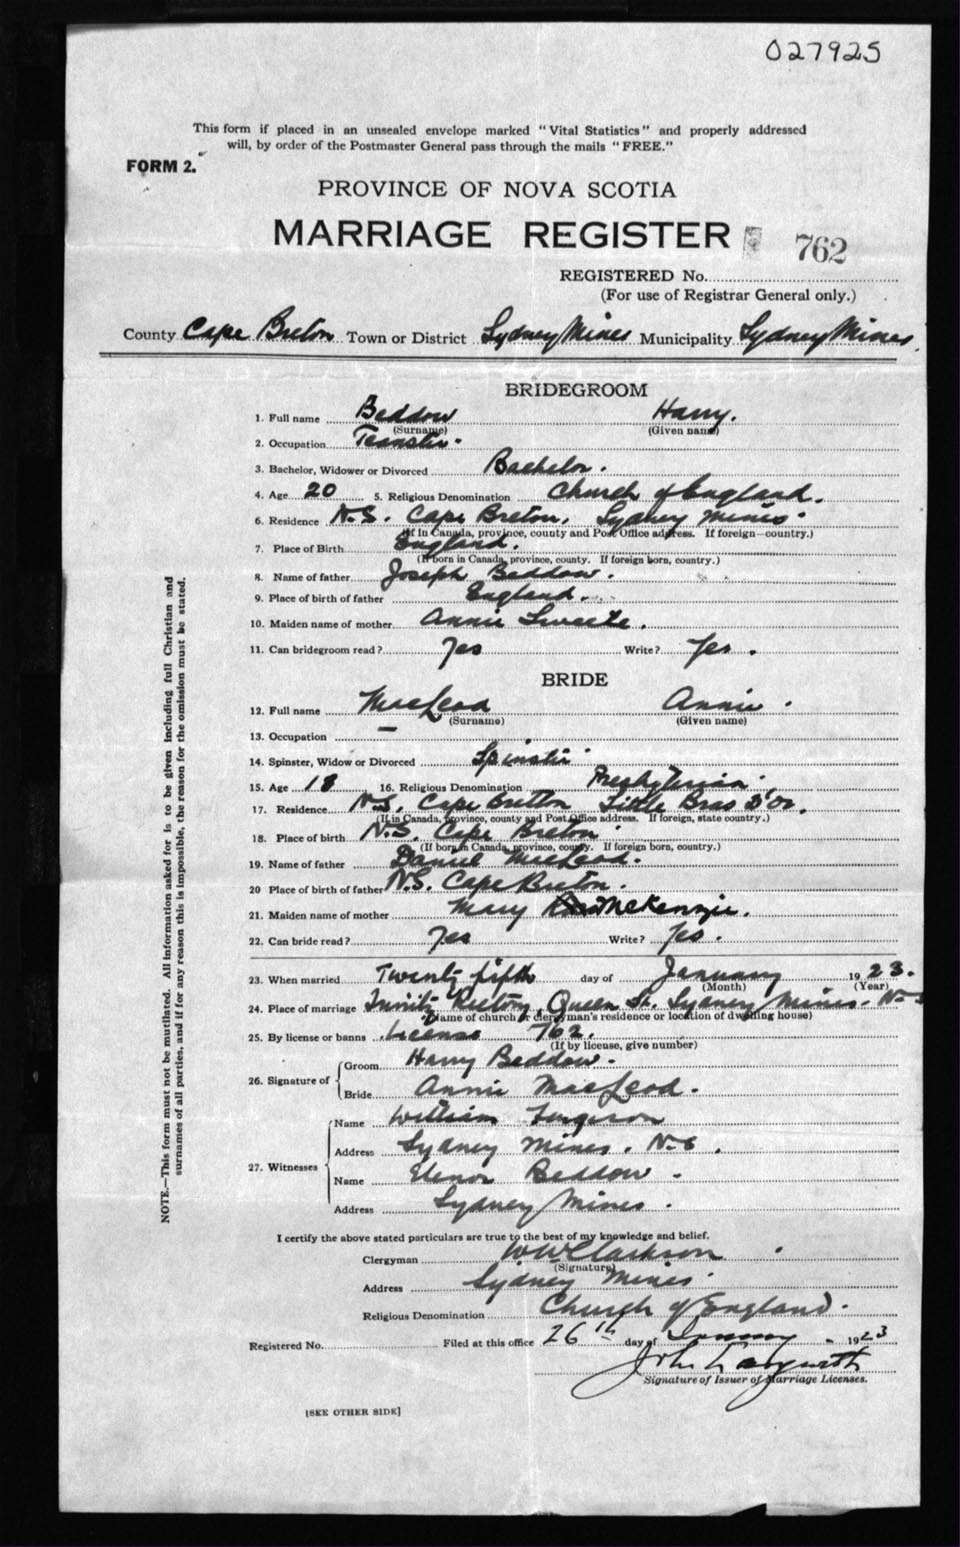 027925
This form if placed in an unsealed envelope marked "Vital Statistics" and properly addressed
will, by order of the Postmaster General pass through the mails "FREE."
FORM 2.
PROVINCE OF NOVA SCOTIA
MARRIAGE REGISTER
762
REGISTERED No.
(For use of Registrar General only.)
County Cape Breton Town or District Sydney Mines Municipality Sydney Mines
BRIDEGROOM
1. Full name Beddow Harry.
(Surname) (Given name)
2. Occupation Teamster.
3. Bachelor, Widower or Divorced Bachelor.
4. Age 20 5. Religious Denomination Church of England.
6. Residence N.S. Cape Breton, Sydney Mines.
(If in Canada, province, county and Post Office address. If foreign—country.)
7. Place of Birth England.
(If born in Canada, province, county. If foreign born, country.)
8. Name of father Joseph Beddow.
9. Place of birth of father England.
10. Maiden name of mother Annie
11. Can bridegroom read? Yes Write? Yes.
BRIDE
12. Full name MacLeod Annie.
(Surname) (Given name)
13. Occupation —
14. Spinster, Widow or Divorced Spinster
15. Age 18 16. Religious Denomination Presbyterian.
17. Residence N.S. Cape Breton Little Bras D'or.
(If in Canada, province, county and Post Office address. If foreign, state country.)
18. Place of birth N.S. Cape Breton.
(If born in Canada, province, county. If foreign born, country.)
19. Name of father Daniel MacLeod.
20 Place of birth of father N.S. Cape Breton.
21. Maiden name of mother Mary McKenzie.
22. Can bride read? Yes Write? Yes.
23. When married Twenty fifth day of January 1923.
(Month) (Year)
24. Place of marriage Trinity Rectory, Queen St. Sydney Mines. N.S
(Name of church or clergyman's residence or location of dwelling house)
25. By license or banns License 762.
(If by license, give number)
26. Signature of Groom Harry Beddow.
Bride Annie MacLeod.
27. Witnesses Name William Ferguson
Address Sydney Mines, N.S.
Name Elenor Beddow.
Address Sydney Mines.
I certify the above stated particulars are true to the best of my knowledge and belief.
Clergyman W W Clarkson
(Signature)
Address Sydney Mines.
Religious Denomination Church of England.
Registered No. Filed at this office 26th day of January 1923
John
Signature of Issuer of Marriage Licenses.
[SEE OTHER SIDE]
NOTE.—This form must not be mutilated. All information asked for is to be given including full Christian and
surnames of all parties, and if for any reason this is impossible, the reason for the omission must be stated.